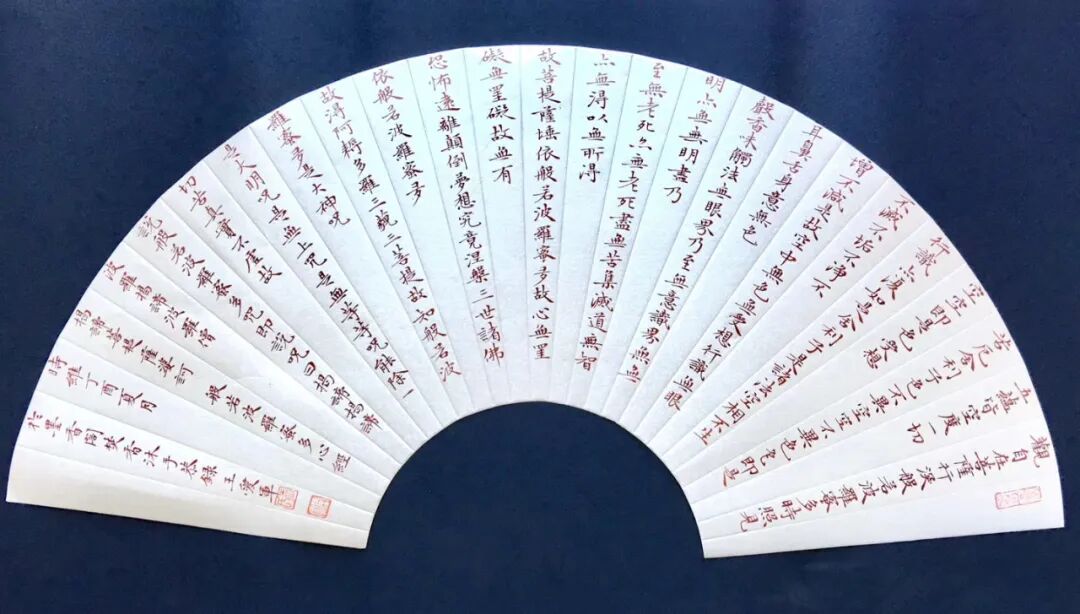 觀自在菩薩行深般若波羅蜜多時照見
五蘊皆空度一切
苦厄舍利子色不異空空不異色色即是
空空即是色受想
行識亦復如是舍利子是諸法空相不生
不滅不垢不淨不
增不減是故空中無色無受想行識無眼
耳鼻舌身意無色
聲香味觸法無眼界乃至無意識界無無
明亦無無明盡乃
至無老死亦無老死盡無苦集滅道無智
亦無得以無所得
故菩提薩埵依般若波羅蜜多故心無罣
礙無罣礙故無有
恐怖遠離顛倒夢想究竟涅槃三世諸佛
依般若波羅蜜多
故得阿耨多羅三藐三菩提故知般若波
羅蜜多是大神咒
是大明咒是無上咒是無等等咒能除一
切苦真實不虛故
說般若波羅蜜多咒即說咒曰揭諦揭諦
波羅揭諦波羅僧
揭諦菩提薩婆訶
般若波羅蜜多心經
時維丁酉夏月
於墨香閣焚香沐手恭錄王愛軍